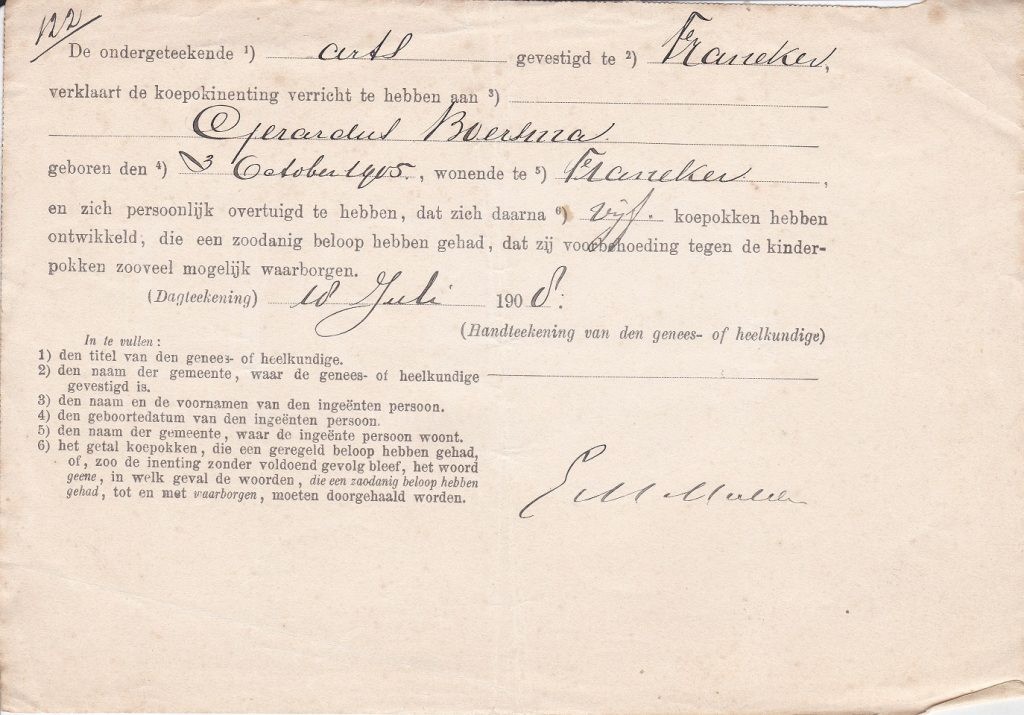 122
De ondergeteekende 1) arts gevestigd te 2) Franeker,
verklaart de koepokinenting verricht te hebben aan 3)
Gerardus Boersma
geboren den 4) 3 October 1905., wonende te 5) Franeker,
en zich persoonlijk overtuigd te hebben, dat zich daarna 6) vijf. koepokken hebben
ontwikkeld, die een zoodanig beloop hebben gehad, dat zij voorbehoeding tegen de kinder-
pokken zooveel mogelijk waarborgen.
(Dagteekening) 18 Juli 1908.
(Handteekening van den genees- of heelkundige)
In te vullen:
1) den titel van den genees- of heelkundige.
2) den naam der gemeente, waar de genees- of heelkundige
gevestigd is.
3) den naam en de voornamen van den ingeënten persoon.
4) den geboortedatum van den ingeënten persoon.
5) den naam der gemeente, waar de ingeënte persoon woont.
6) het getal koepokken, die een geregeld beloop hebben gehad,
of, zoo de inenting zonder voldoend gevolg bleef, het woord
geene, in welk geval de woorden, die een zoodanig beloop hebben
gehad, tot en met waarborgen, moeten doorgehaald worden.